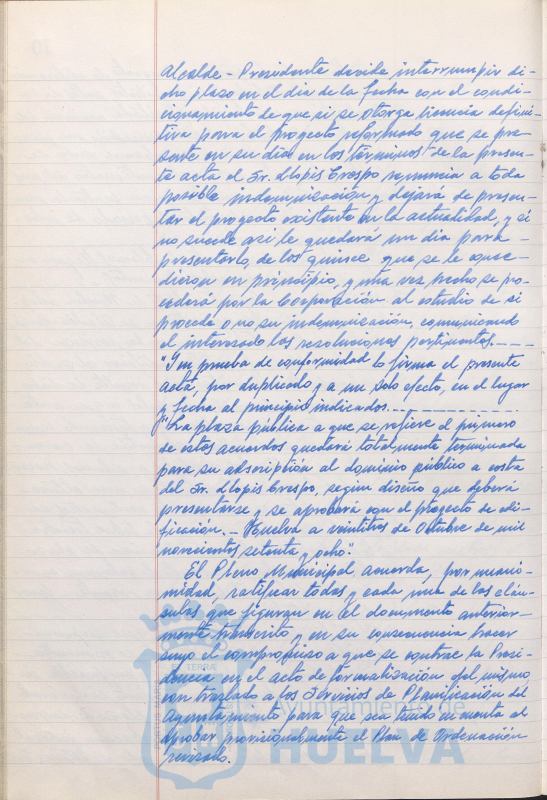 Alcalde - Presidente decide interrumpir di-
cho plazo en el dia de la fecha con el condi-
cionamiento de que si se otorga licencia defini-
tiva para el proyecto reformado que se pre-
sente en su dia en los términos de la presen-
te acta el Sr. Llopis Crespo renuncia a toda
posible indemnización y dejará de presen-
tar el proyecto existente en la actualidad, y si
no sucede asi le quedará un dia para -
presentarlo, de los quince que se le conce-
dieron en principio, y una vez hecho se pro-
cederá por la Corporación al estudio de si
procede o no su indemnización, comunicando
al interesado las resoluciones pertinentes. - - -
"Y en prueba de conformidad lo firma el presente
acta, por duplicado y a un solo efecto, en el lugar
y fecha al principio indicados. - - - - - - - -
"La plaza pública a que se refiere el primero
de estos acuerdos quedará totalmente terminada
para su adscripción al dominio público a costa
del Sr. Llopis Crespo, según diseño que deberá
presentarse y se aprobará con el proyecto de edi-
ficación. - Huelva a veintitres de Octubre de mil
novecientos setenta y ocho".
El Pleno Municipal acuerda, por unani-
midad, ratificar todas y cada una de las cláu-
sulas que figuran en el documento anterior-
mente transcrito, y en su consecuencia hacer
suyo el compromiso a que se contrae la Presi-
dencia en el acto de formalización del mismo,
con traslado a los Servicios de Planificación del
Ayuntamiento para que sea tenido en cuenta al
aprobar provisionalmente el Plan de Ordenación
revisado.
TERRA
Ayuntamiento de
HUELVA